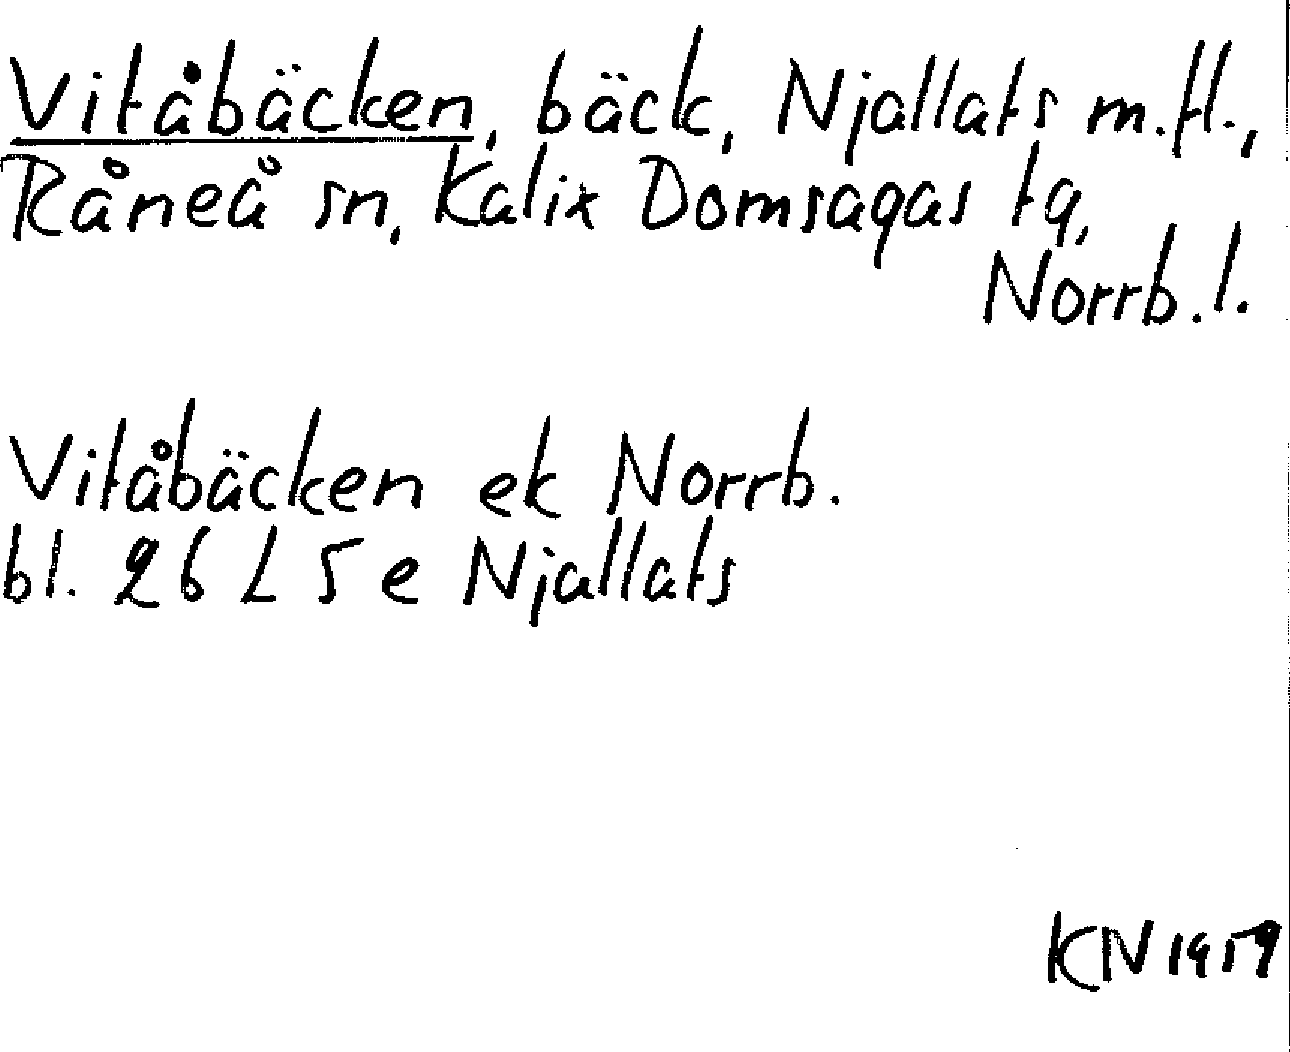 Vitåbäcken, bäck, Njallats m.fl.,
Råneå sn, Kalix Domsagas tg,
Norrb.l.
Vitåbäcken ek Norrb.
bl. 26 L 5 e Njallats
KN 1959